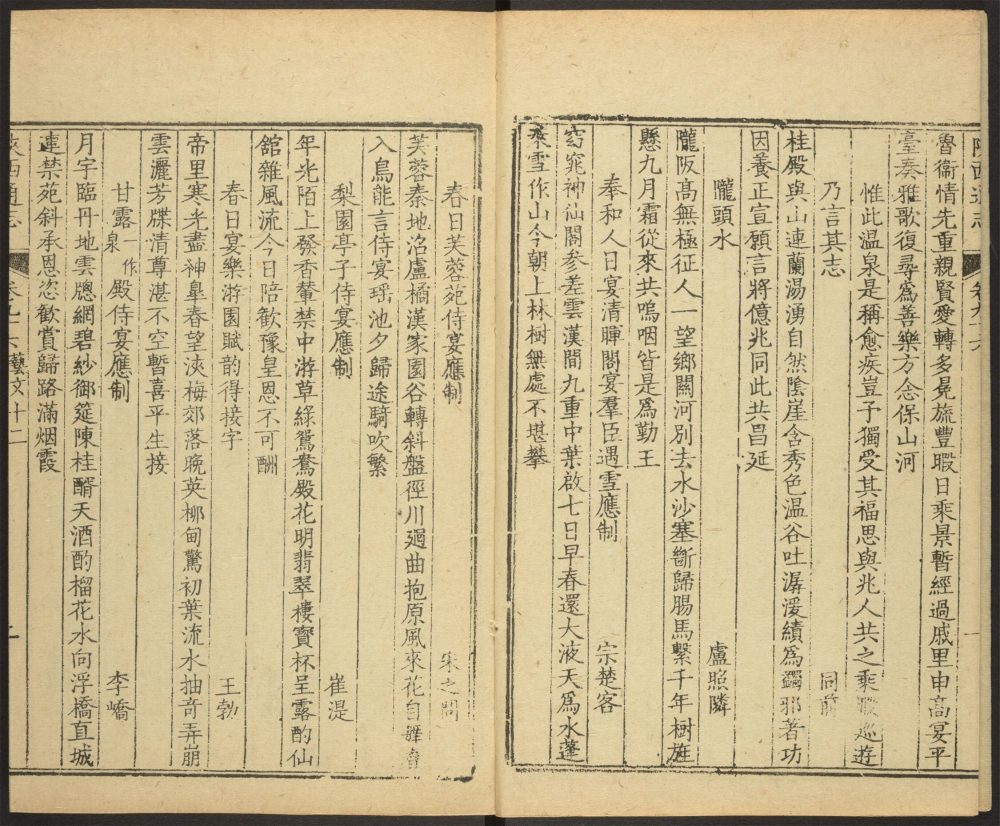 陝西通志 卷九十六 一
魯衞情先重親賢愛轉多冕旒豐暇日乘景暫經過戚里申高宴平
臺奏雅歌復尋爲善樂方念保山河
惟此温泉是稱愈疾豈予獨受其福思與兆人共之乘暇巡遊
乃言其志 同前
桂殿與山連蘭湯湧自然陰崖含秀色温谷吐潺湲績爲蠲邪著功
因養正宣願言將億兆同此共昌延
隴頭水 盧照隣
隴阪高無極征人一望鄉關河別去水沙塞斷歸腸馬繫千年樹旌
懸九月霜從來共嗚咽皆是爲勤王
奉和人日宴清暉閣宴羣臣遇雪應制 宗楚客
窈窕神仙閣參差雲漢間九重中葉啟七日早春還太液天爲水蓬
萊雪作山今朝上林樹無處不堪攀
春日芙蓉苑侍宴應制 宋之問
芙蓉秦地沼盧橘漢家園谷轉斜盤徑川廻曲抱原風來花自舞春
入鳥能言侍宴瑤池夕歸途騎吹繁
梨園亭子侍宴應制 崔湜
年光陌上發香輦禁中游草綠鴛鴦殿花明翡翠樓寶杯呈露酌仙
館雜風流今日陪歡豫皇恩不可酬
春日宴樂游園賦韵得接字 王勃
帝里寒光盡神臯春望浹梅郊落晚英柳甸驚初葉流水抽奇弄崩
雲灑芳牒清尊湛不空暫喜平生接
甘露一作泉殿侍宴應制 李嶠
月字臨丹地雲牕網碧紗御筵陳桂醑天酒酌榴花水向浮橋直城
連禁苑斜承恩恣歡賞歸路滿烟霞
陝西通志 卷九十六 藝文十二 二